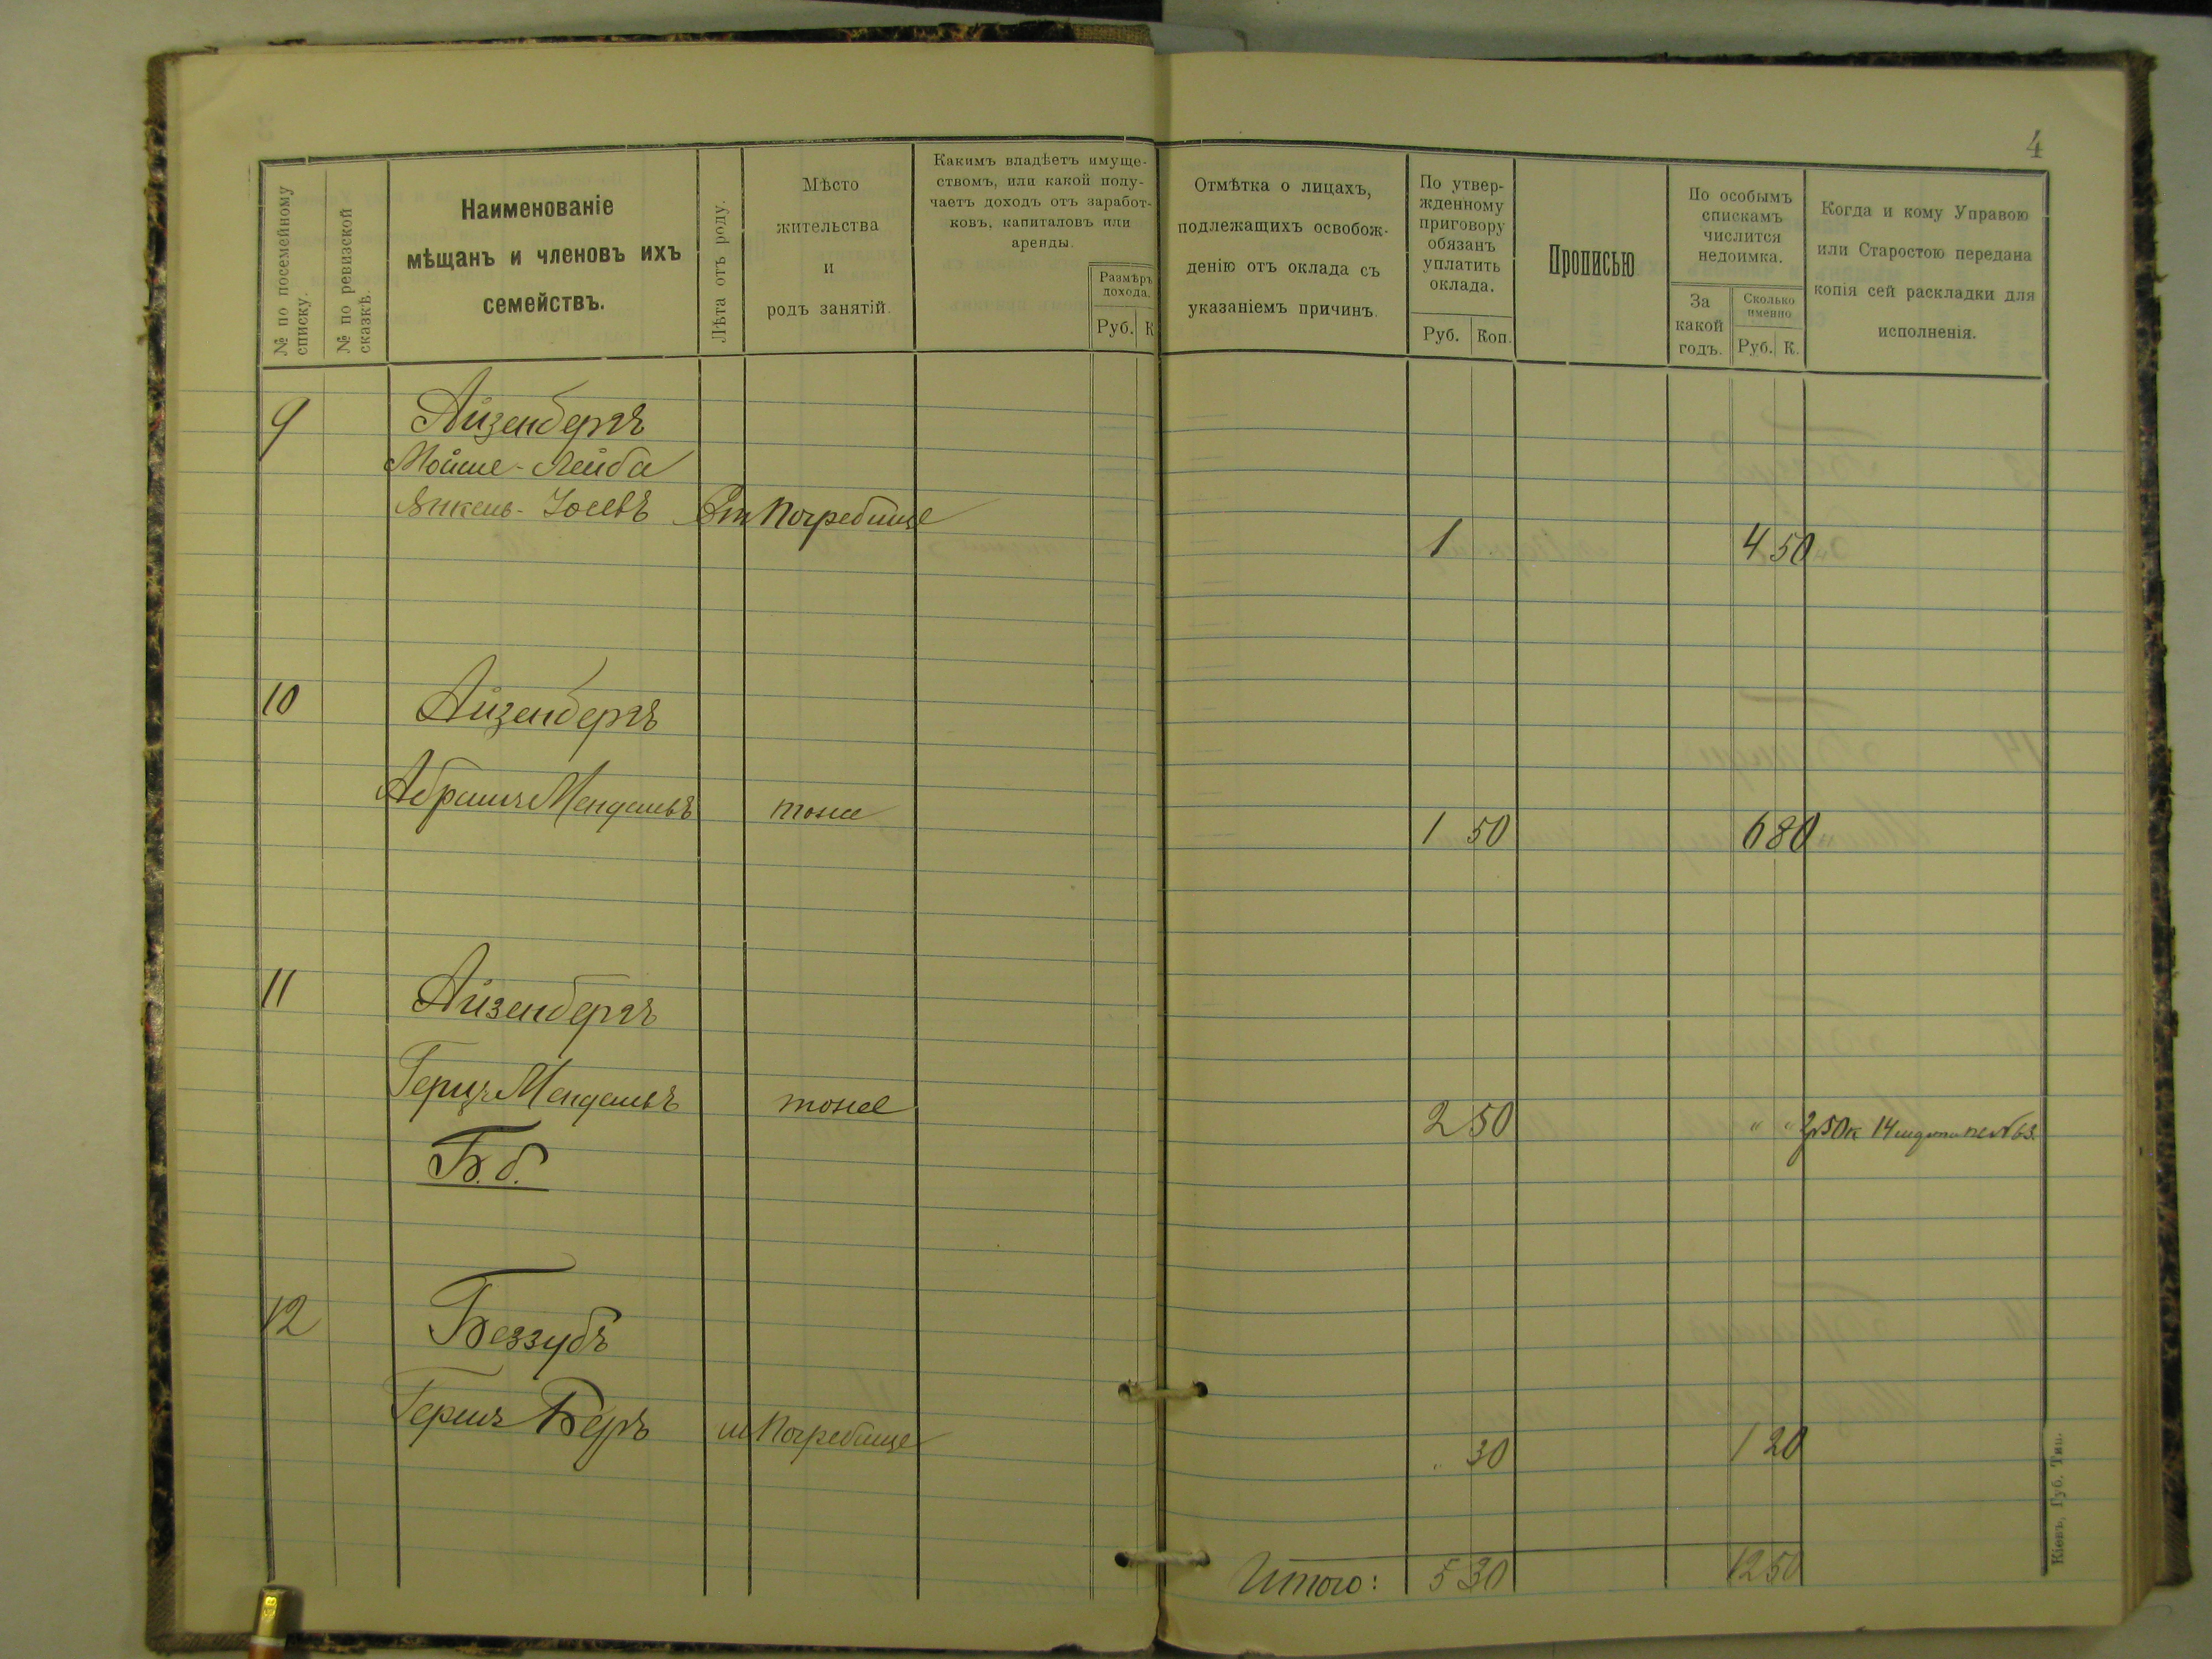 4
№ по посемейному списку.
№ по ревизской сказкѣ.
Наименованіе
мѣщанъ и членовъ ихъ
семействъ.
Лѣта отъ роду.
Мѣсто
жительства
и
родъ занятій.
Какимъ владѣетъ имуще-
ствомъ, или какой полу-
чаетъ доходъ отъ заработ-
ковъ, капиталовъ или
аренды.
Размѣръ
дохода.
Руб. К
Отмѣтка о лицахъ,
подлежащихъ освобож-
денію отъ оклада съ
указаніемъ причинъ.
По утвер-
жденному
приговору
обязанъ
уплатить
оклада.
Руб. Коп.
Прописью
По особымъ
спискамъ
числится
недоимка.
За
какой
годъ.
Сколько
именно
Руб. К.
Когда и кому Управою
или Старостою передана
копія сей раскладки для
исполненія.
9 Айзенбергъ
Мойше-Лейба
Янкель-Іосевъ Вт Погребище 1 4 50
10 Айзенбергъ
Абрамъ Менделевъ тоже 1 50 6 80
11 Айзенбергъ
Герцъ Менделевъ тоже 2 50 " " 2р50к 14
Б. б.
12 Беззубъ
Гершъ Беръ м Погребище " 30 1 20
Итого: 5 30 12 50
Кіевъ, Губ. Тип.